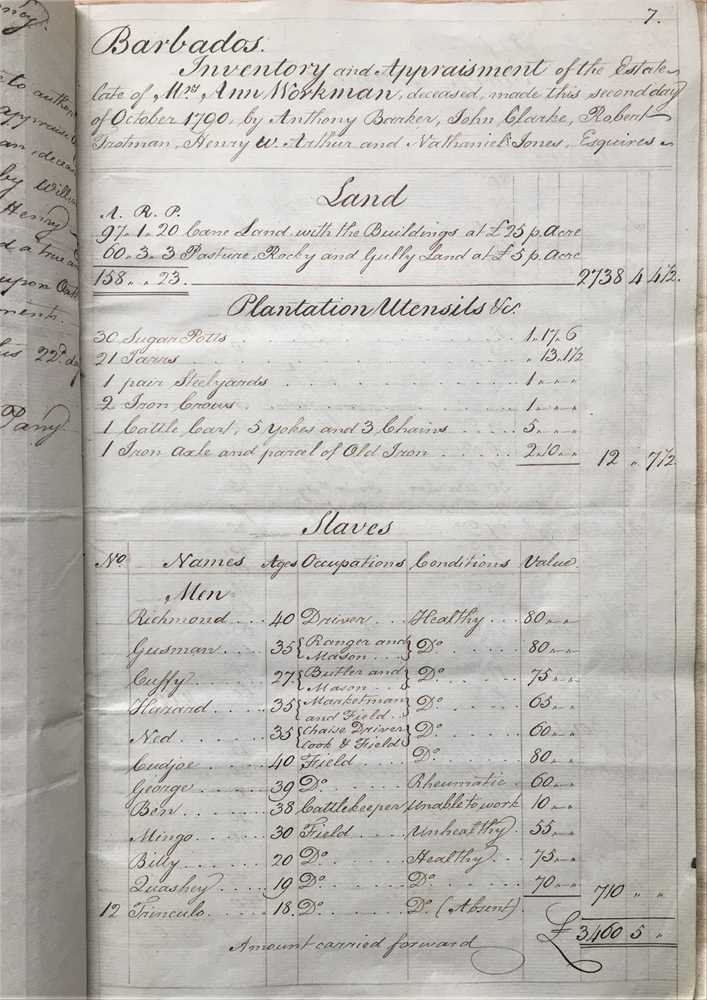 7.
Barbados.
Inventory and Appraisment of the Estate
late of Mrs Ann Workman, deceased, made this second day
of October 1790, by Anthony Barker, John Clarke, Robert
Trotman, Henry W. Arthur and Nathaniel Jones, Esquires
Land
A. R. P.
97. 1. 20 Cane Land with the Buildings at £25 p. Acre
60. 3. 3 Pasture, Rocky and Gully Land at £5 p. Acre
158 " " 23. 2738 4 4½.
Plantation Utensils &c.
30 Sugar Potts . . . 1. 17. 6
21 Jarrs . . . " 13. 1½
1 pair Steelyards . . . 1 " " "
2 Iron Crows . . . 1 " " "
1 Cattle Cart, 5 Yokes and 3 Chains . . . 5 " " "
1 Iron Axle and parcel of Old Iron . . . 2. 10 " " 12 " 7½
Slaves
No. Names Ages Occupations Conditions Value
Men
Richmond . . . 40 Driver . . . Healthy . . 80 " "
Gusman . . . 35 { Ranger and Mason } Do 80 " "
Cuffy . . . 27 { Butler and Mason } Do 75 " "
Hazard . . . 35 { Marketman and Field } Do 65 " "
Ned . . . 35 { Chaise Driver Cook & Field } Do 60 " "
Cudjoe . . . 40 Field . . . Do 80 " "
George . . . 39 Do . . . Rheumatic . 60 " "
Ben . . . 38 Cattlekeeper Unable to work 10 " "
Mingo . . . 30 Field . . . Unhealthy . . 55 " "
Billy . . . 20 Do . . . Healthy . . . 75 " "
Quashey . . . 19 Do . . . Do . . . 70 " " 710 " "
12 Trinculo . . . 18. Do . . . Do (Absent)
Amount carried forward £ 3460 5 "
to author
appraise
by Willi
Henry
d a true an
upon Oath
ments.
22d. day
Parry